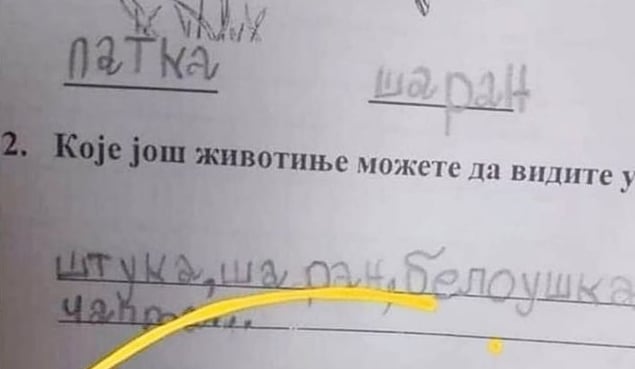 патка шаран
2. Које још животиње можете да видите у
штука, шаран, белоушка